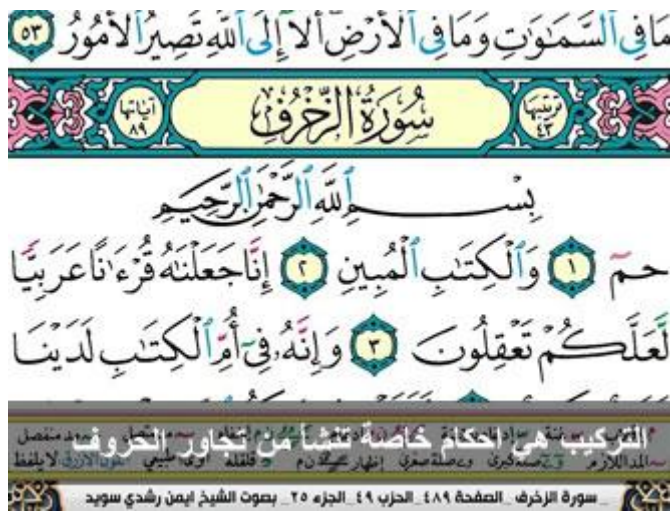 مَا فِى ٱلسَّمَٰوَٰتِ وَمَا فِى ٱلْأَرْضِ أَلَآ إِلَى ٱللَّهِ تَصِيرُ ٱلْأُمُورُ ٥٣
ترتيبها ٤٣ سُورَةُ الزُّخْرُفِ آياتها ٨٩
بِسْمِ ٱللَّهِ ٱلرَّحْمَٰنِ ٱلرَّحِيمِ
حمٓ ١ وَٱلْكِتَٰبِ ٱلْمُبِينِ ٢ إِنَّا جَعَلْنَٰهُ قُرْءَٰنًا عَرَبِيًّا
لَّعَلَّكُمْ تَعْقِلُونَ ٣ وَإِنَّهُۥ فِىٓ أُمِّ ٱلْكِتَٰبِ لَدَيْنَا
التركيب هي احكام خاصة تنشأ من تجاور الحروف
سورة الزخرف _الصفحة ٤٨٩_ الحزب ٤٩_ الجزء ٢٥_ بصوت الشيخ ايمن رشدي سويد